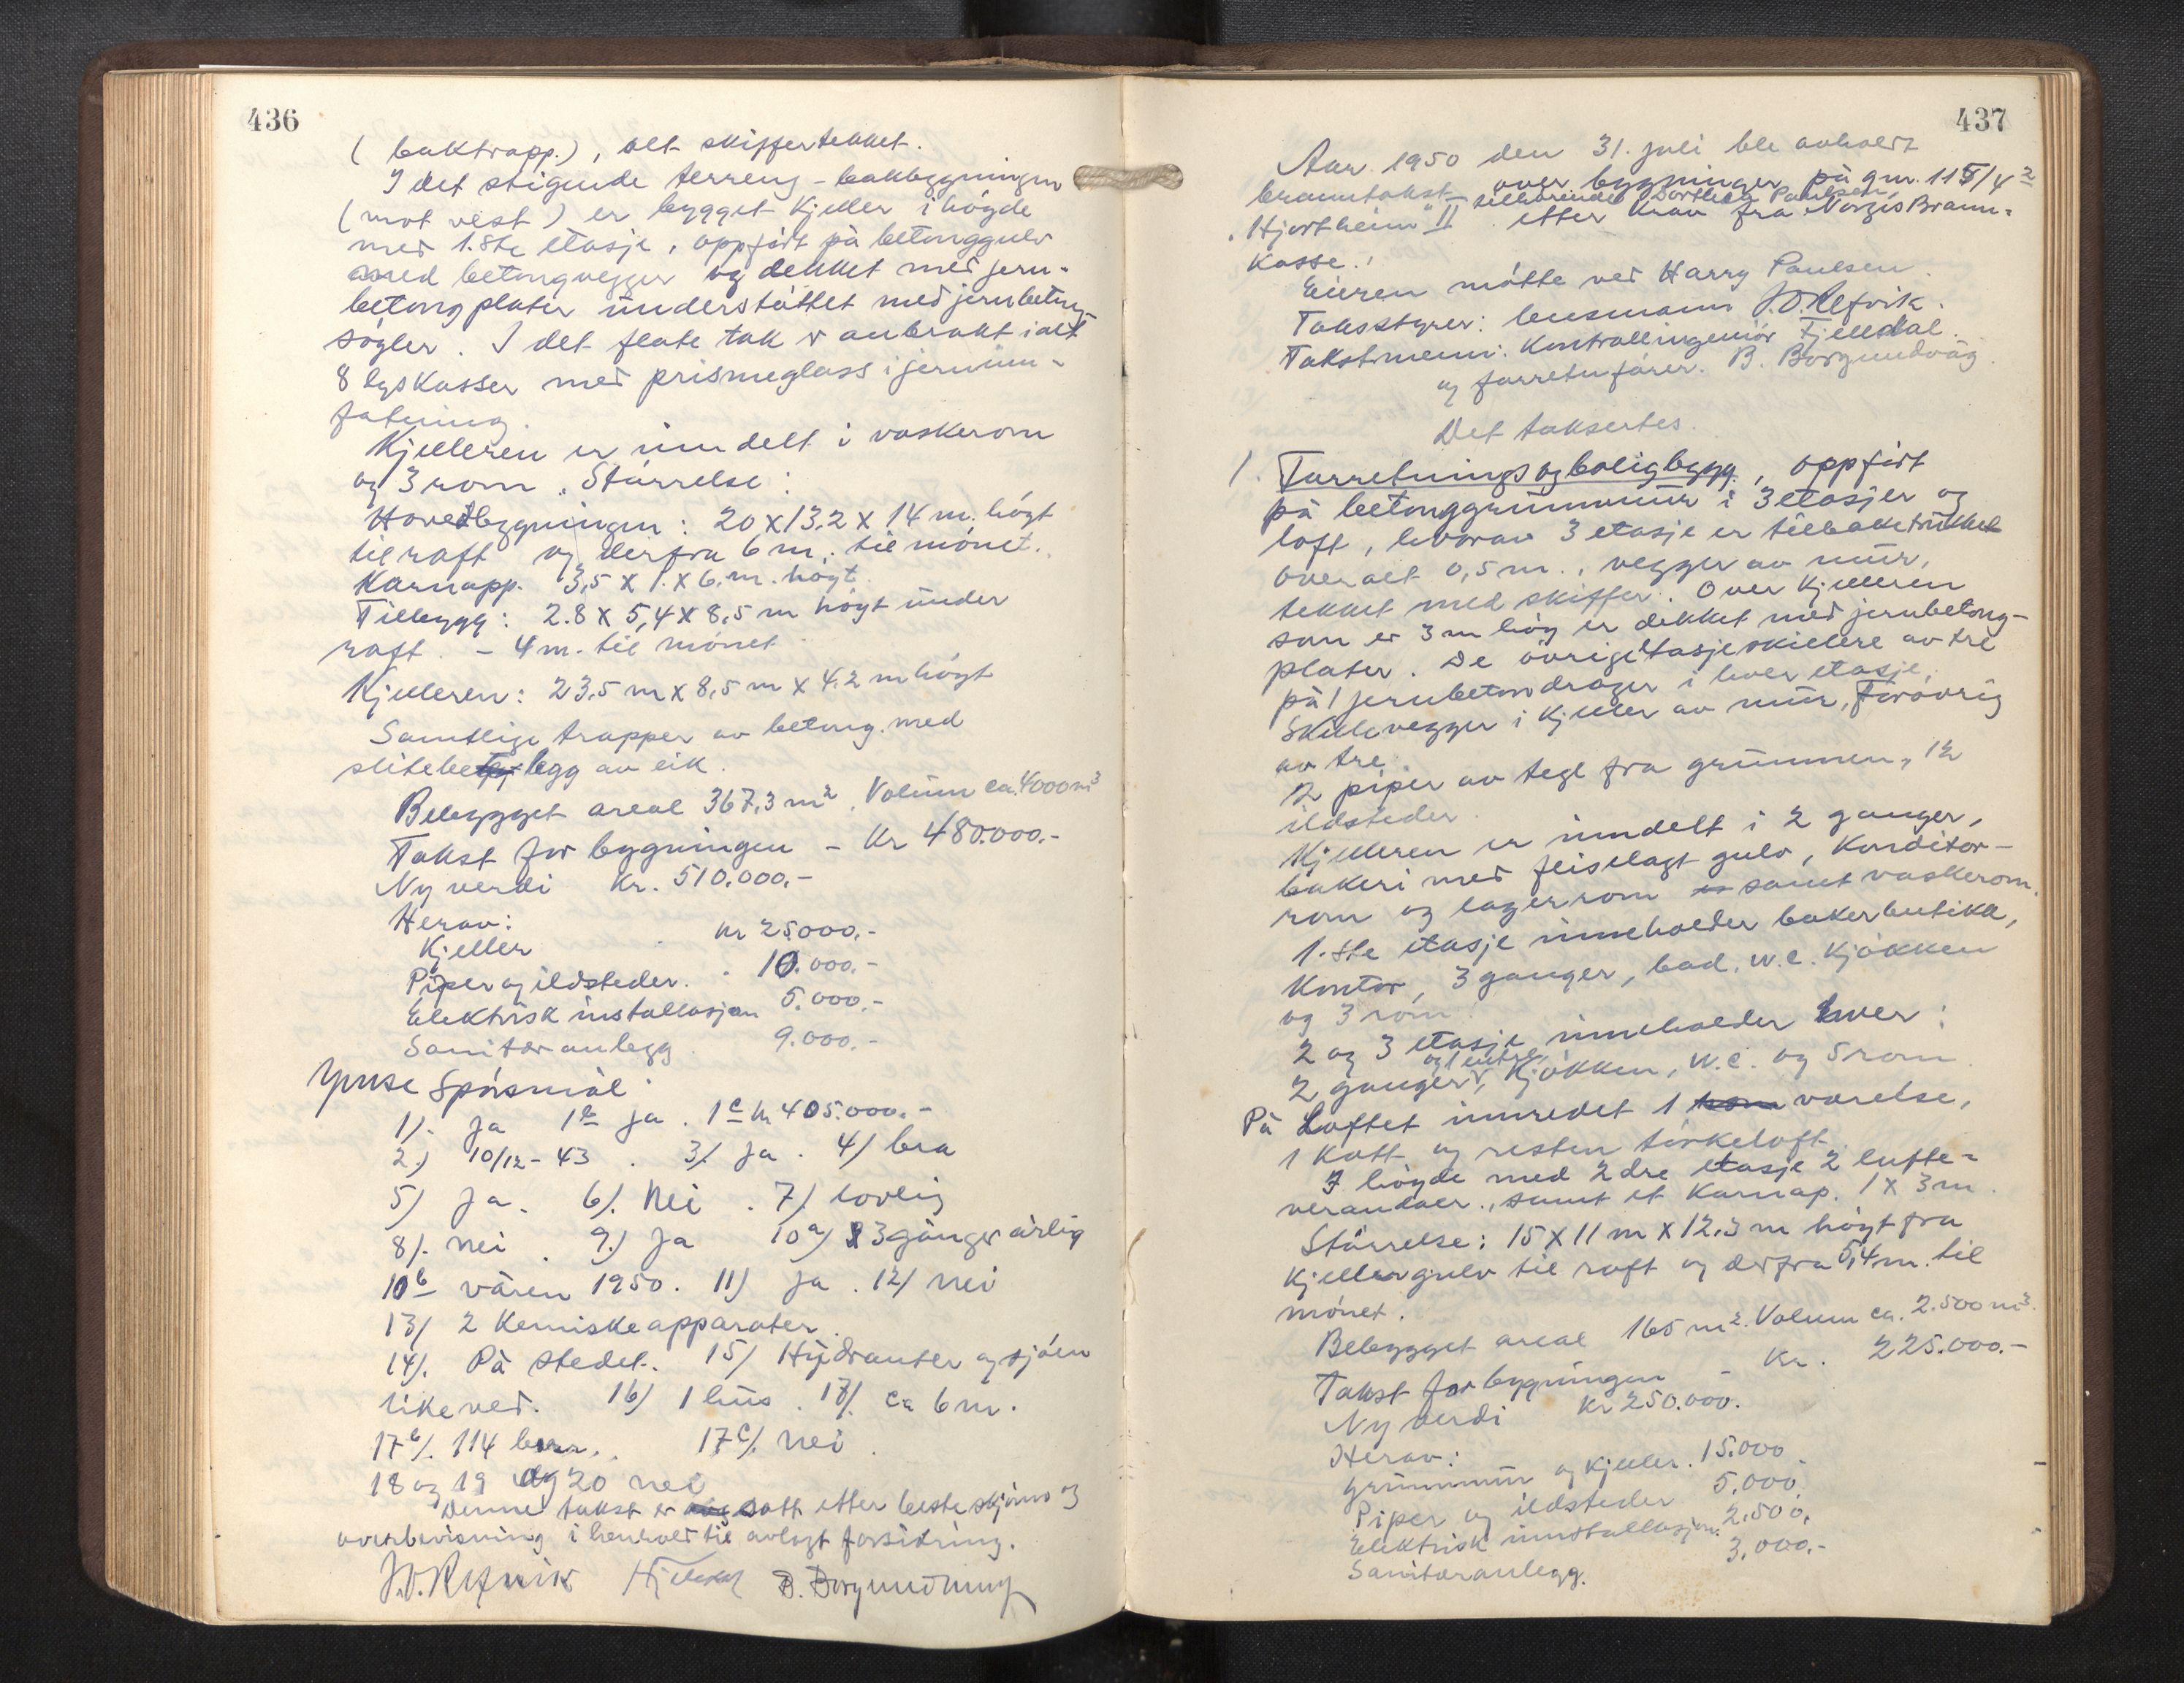 436
( baktrapp.), alt skiffertekket.
I det stigende terreng - bakbygningen
(mot vest) er bygget kjeller i högde
med 1.ste etasje, oppfört på betonggulv
med betongvegger og dekket med jern-
betongplater understöttet med jernbetong-
söyler. I det flate tak er anbrakt i alt
8 lyskasser med prismeglass i jerninn-
fatning.
Kjelleren er inndelt i vaskerom
og 3 rom. Störrelse:
Hovedbygningen: 20 x 13,2 x 14 m. högt
til raft og derfra 6 m. til mönet.
Karnapp. 3,5 x 1. x 6. m. högt
Tilbygg: 2.8 x 5,4 x 8,5 m högt under
raft. - 4 m. til mönet
Kjelleren: 23,5 m x 8,5 m x 4.2 m högt
Samtlige trapper av betong med
slitebelegg av eik.
Bebygget areal 367,3 m². Volum ca. 4000 m³
Takst for bygningen - Kr 480.000.-
Ny verdi Kr. 510.000.-
Herav:
Kjeller kr 25000.-
Piper og ildsteder. - 10.000.-
Elektrisk installasjon 5.000.-
Sanitæranlegg 9.000.-
Ymse Spörsmål:
1). Ja 1a ja. 1c kr 405.000.-
2.) 10/12 - 43. 3/. Ja. 4/ bra
5) Ja. 6/. Nei. 7/. lovlig
8/. nei. 9.) Ja 10a) 3 ganger årlig
10b våren 1950. 11) Ja. 12/ nei
13/ 2 Kemiske apparater.
14/. På stedet. 15/ Hydranter og sjöen
like ved. 16/ 1 hus. 17/. ca 6 m.
17b/. 114 bern. 17c/. nei.
18 og 19 og 20 nei
Denne takst er satt etter beste skjönn og
overbevisning i henhold til avlagt forsikring.
J.O. Refvik Fjelldal B. Borgundvåg
437
Aar 1950 den 31. juli ble avholdt
branntakst over bygninger på gnr. 115/4 2
tilhörende Dorthea Paulsen,
"Hjortheim" II etter krav fra Norges Brann-
kasse.
Eieren mötte ved Harry Paulsen.
Takstyrer: lensmann J.O. Refvik.
Takstmenn: Kontrollingeniör Fjelldal.
og forretn.förer. B. Borgundvåg
Det taksertes.
1. Forretnings og boligbygg, oppfört
på betonggrunnmur i 3 etasjer og
loft, hvorav 3 etasje er tilbaketrukket
overalt 0,5 m., vegger av mur,
tekket med skiffer. Over Kjelleren
som er 3 m höy er dekket med jernbetong-
plater. De övrige etasjeskillere av tre
på 1 jernbetondrager i hver etasje.
Skillevegger i Kjeller av mur, Forövrig
av tre.
2 piper av tegl fra grunnen, 12
ildsteder.
Kjelleren er inndelt i 2 ganger,
bakeri med fliselagt gulv, Konditor-
rom og lagerrom samt vaskerom.
1.ste etasje inneholder bakerbutikk,
Kontor, 3 ganger, bad. W.C. Kjökken
og 3 rom.
2 og 3 etasje inneholder hver:
og 1 entre
2 ganger, Kjökken, W.C. og 5 rom
På Loftet innredet 1 værelse,
1 Kott og resten törkeloft.
I höyde med 2dre etasje 2 lufte-
verandaer., samt et Karnap. 1 x 3 m.
Störrelse: 15 x 11 m x 12,3 m högt fra
Kjellergulv til raft og derfra 5,4 m. til
mönet.
Bebygget areal 165 m². Volum ca. 2.500 m³.
Takst for bygningen - Kr. 225.000.-
Ny verdi Kr 250.000.
Herav:
Grunnmur og kjeller. 15.000
Piper og ildsteder 5.000.
Elektrisk innstallasjon. 2.500.
Sanitæranlegg. 3.000.-